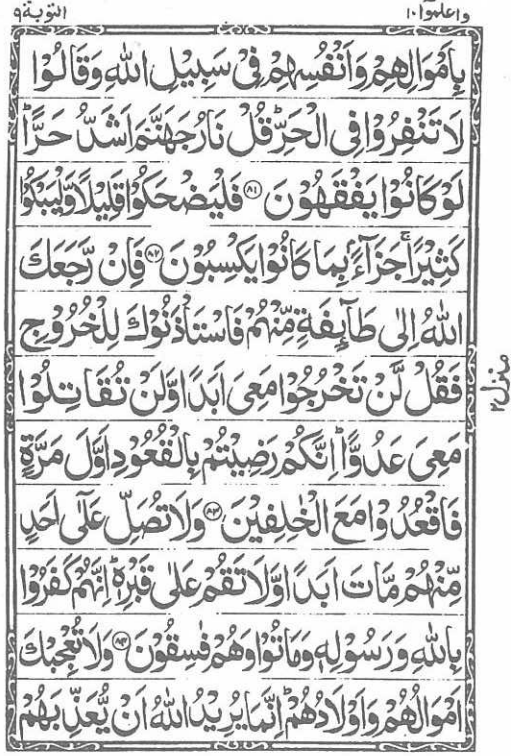 واعلموا ١٠
التوبة ٩
بِاَمْوَالِهِمْ وَاَنْفُسِهِمْ فِیْ سَبِیْلِ اللّٰهِ وَقَالُوْا
لَا تَنْفِرُوْا فِی الْحَرِّؕ قُلْ نَارُ جَهَنَّمَ اَشَدُّ حَرًّاؕ
لَوْ كَانُوْا یَفْقَهُوْنَ ﴿۸۱﴾ فَلْیَضْحَكُوْا قَلِیْلًا وَّلْیَبْكُوْا
كَثِیْرًاۚ جَزَآءًۢ بِمَا كَانُوْا یَكْسِبُوْنَ ﴿۸۲﴾ فَاِنْ رَّجَعَكَ
اللّٰهُ اِلٰی طَآىِٕفَةٍ مِّنْهُمْ فَاسْتَاْذَنُوْكَ لِلْخُرُوْجِ
فَقُلْ لَّنْ تَخْرُجُوْا مَعِیَ اَبَدًا وَّلَنْ تُقَاتِلُوْا
مَعِیَ عَدُوًّاؕ اِنَّكُمْ رَضِیْتُمْ بِالْقُعُوْدِ اَوَّلَ مَرَّةٍ
فَاقْعُدُوْا مَعَ الْخٰلِفِیْنَ ﴿۸۳﴾ وَلَا تُصَلِّ عَلٰۤی اَحَدٍ
مِّنْهُمْ مَّاتَ اَبَدًا وَّلَا تَقُمْ عَلٰی قَبْرِهٖؕ اِنَّهُمْ كَفَرُوْا
بِاللّٰهِ وَرَسُوْلِهٖ وَمَاتُوْا وَهُمْ فٰسِقُوْنَ ﴿۸۴﴾ وَلَا تُعْجِبْكَ
اَمْوَالُهُمْ وَاَوْلَادُهُمْؕ اِنَّمَا یُرِیْدُ اللّٰهُ اَنْ یُّعَذِّبَهُمْ
منزل ۲